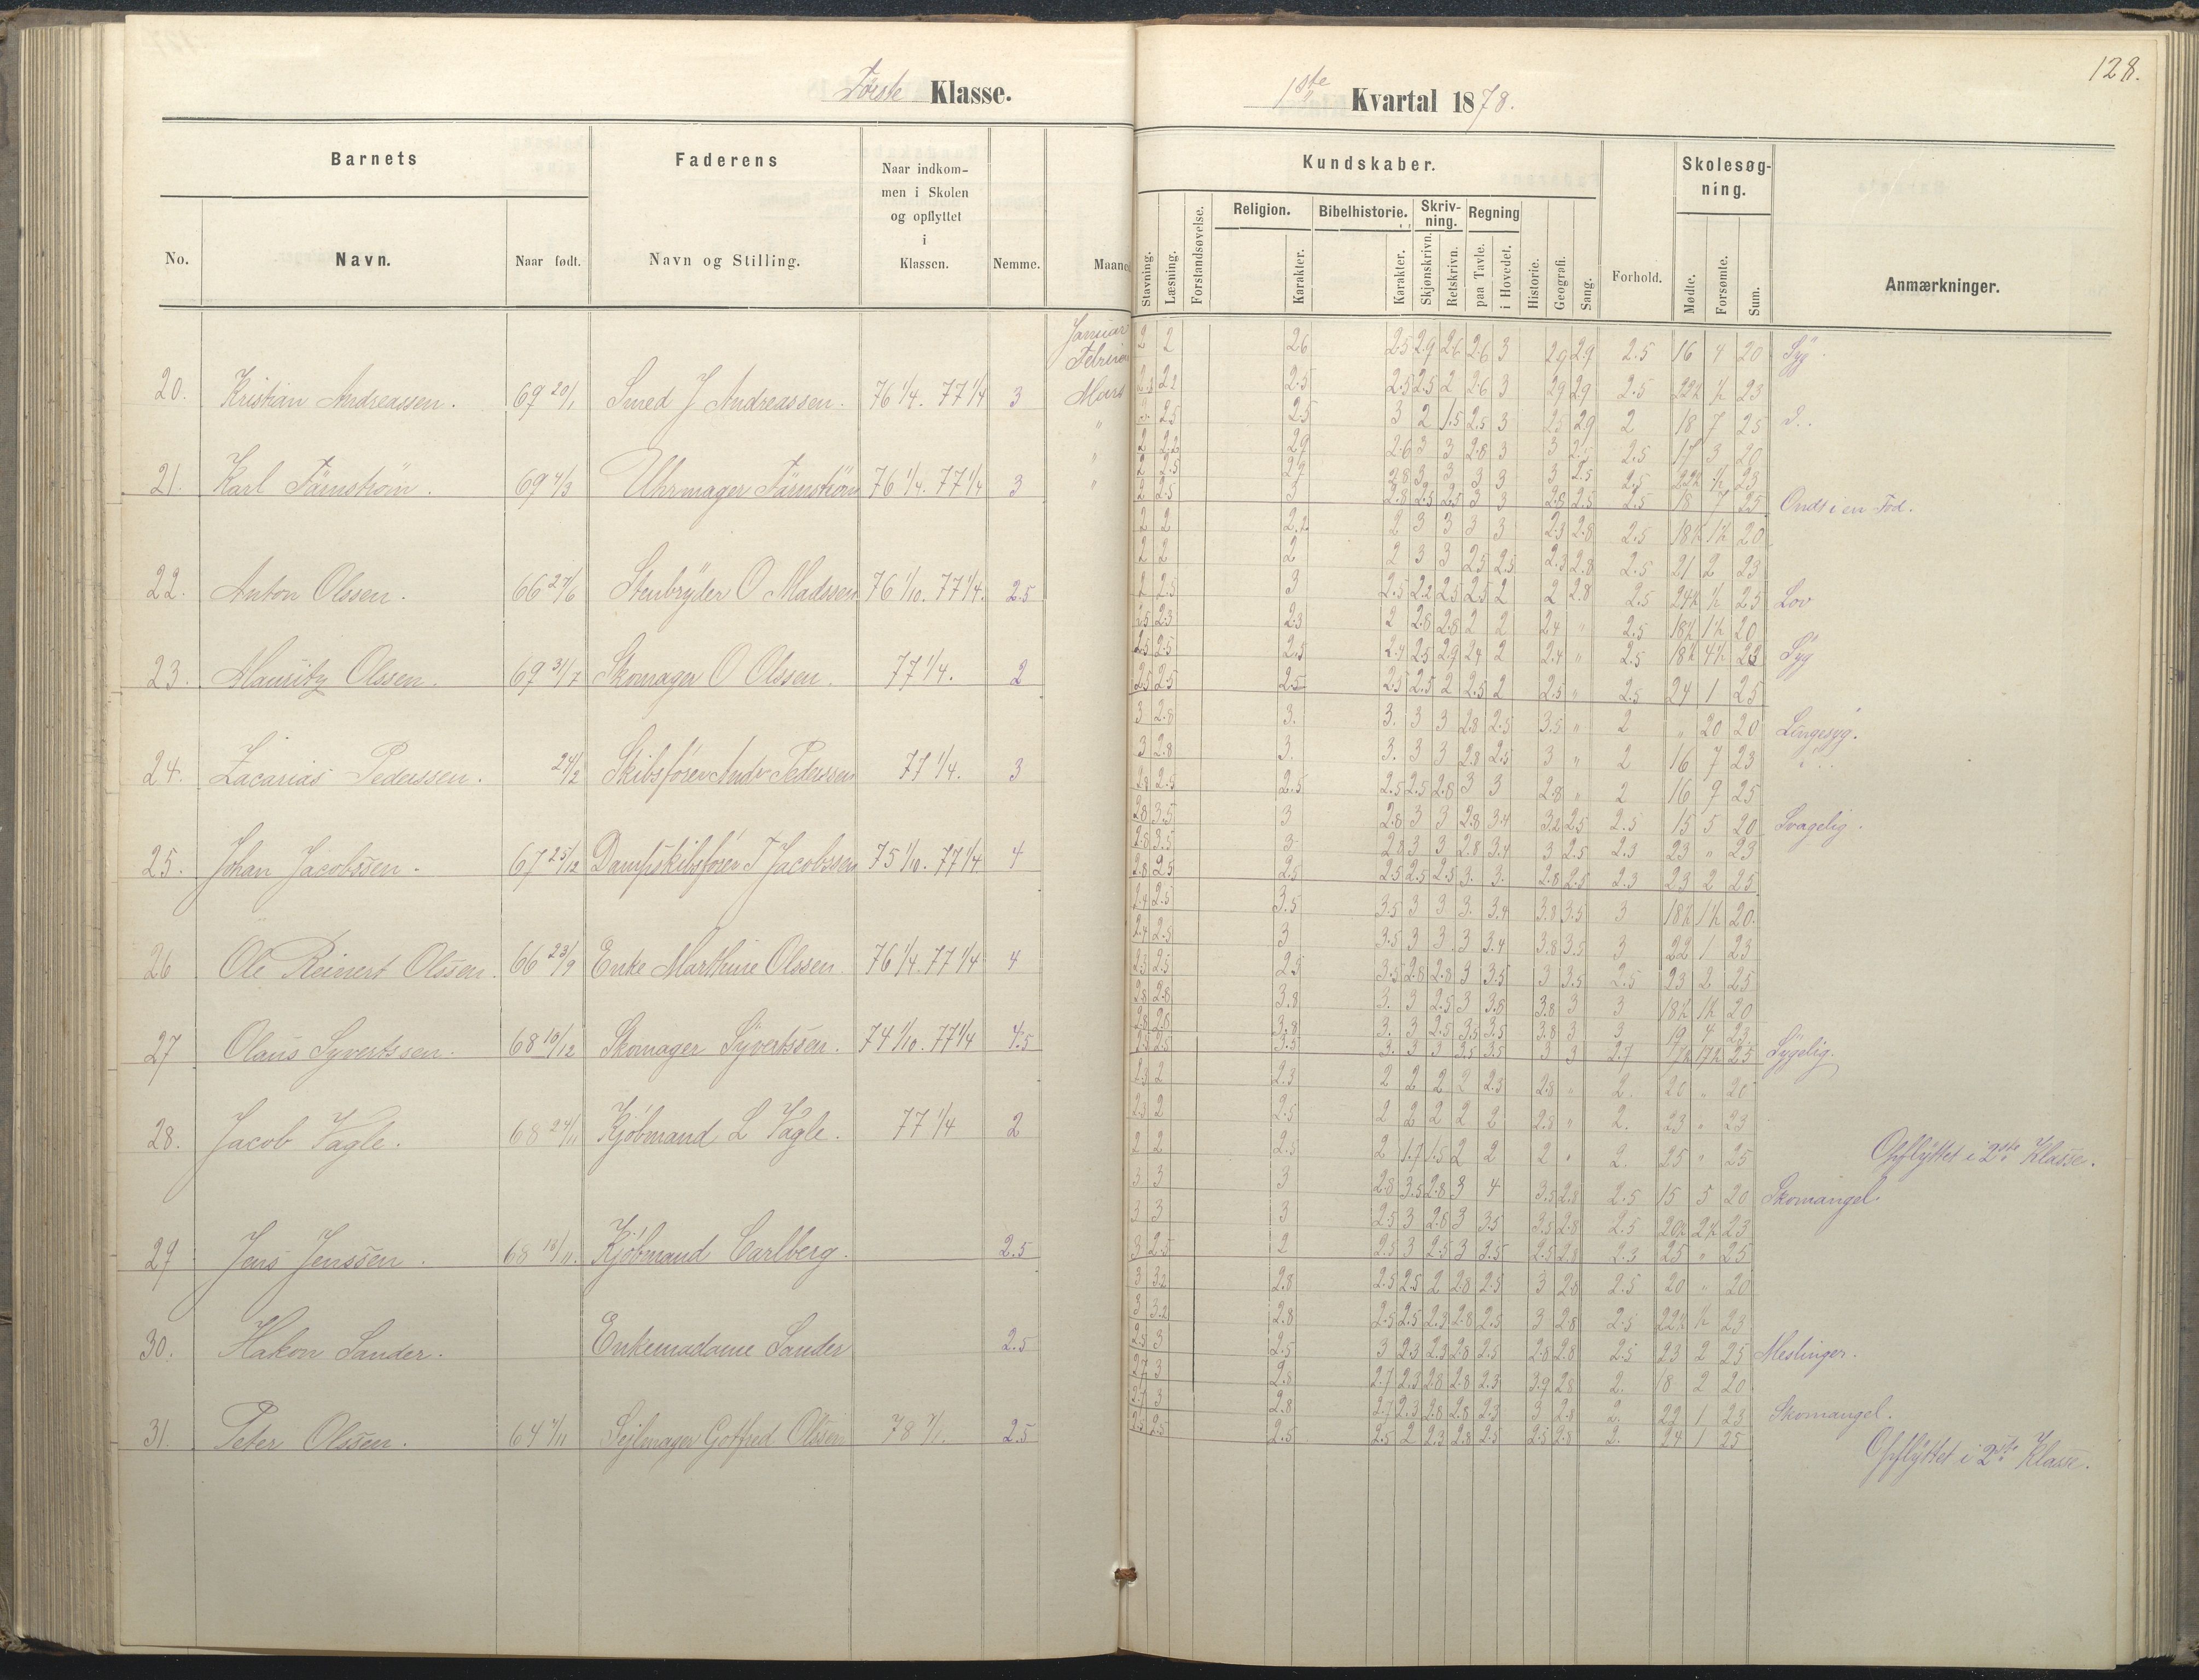 128.
Første Klasse.
1ste Kvartal 1878.
Barnets
Faderens
Naar indkom-
men i Skolen
og opflyttet
i
Klassen.
Kundskaber.
Skolesøg-
ning.
No.
Navn.
Naar født.
Navn og Stilling.
Nemme.
Maaned
Stavning.
Læsning.
Forstandsøvelse.
Religion.
Karakter.
Bibelhistorie.
Karakter.
Skriv-
ning.
Skjønskrivn.
Retskrivn.
Regning
paa Tavle.
i Hovedet.
Historie.
Geografi.
Sang.
Forhold.
Mødte.
Forsømte.
Sum.
Anmærkninger.
Januar
Februar
2 2 26 25 29 26 26 3 29 29 2.5 16 4 20 Syg
20. Kristian Andreassen. 69 20/1 Smed J Andreassen. 76 1/4. 77 1/4 3 Mars
22 2.5 2.5 2.5 2 2.6 3 29 29 2.5 22½ ½ 23
25 2.5 3 2 1.5 2.5 3 25 29 2 18 7 25
2 22 29 2.6 3 3 2.8 3 3 2.5 2.5 17 3 20
21. Karl 69 4/3 Uhrmager 76 1/4. 77 1/4 3
2 2.5 29 28 3 3 3 3 3 2.5 2.5 22½ ½ 23
2 2.5 3 2.8 2.5 2.5 3 3 2.8 2.5 2.5 18 7 25 Ondt i en Fod.
2 2 2.2 2 3 3 3 3 2.3 2.8 2.5 18½ 1½ 20
22. Anton Olssen. 66 27/6 Stenbryder O Madssen 76 1/10. 77 1/4. 2.5
2 2 2 2 3 3 2.5 2.5 2.3 2.8 2.5 21 2 23
2 2.5 3 2.5 2.2 2.5 2.5 2 2 2.8 2.5 24½ ½ 25 Lov
25 23 23 2 2.8 2.8 2 2 24 " 2.5 18½ 1½ 20
23. Mauritz Olssen. 69 31/7 Skomager O Olssen. 77 1/4. 2
25 25 2.5 2.4 25 29 24 2 2.4 " 2.5 18½ 4½ 23 Syg
25 25 25 2.5 2.5 2 2.5 2 2.5 " 2.5 24 1 25
3 2.8 3. 3. 3 3 2.8 2.5 3.5 " 2 " 20 20 Lungesyg.
24. Zacarias Pederssen. 24/2 Skibsfører Andr Pederssen 77 1/4. 3
3 2.8 3. 3. 3 3 2.8 2.5 3 " 2 16 7 23
28 2.5 2.5 2.5 2.5 2.8 3 3 2.8 " 2 16 9 25
28 3.5 3 2.8 3 3 2.8 3.4 3.2 2.5 2.5 15 5 20 Svagelig.
25. Johan Jacobssen. 67 25/12 Dampskibsfører T Jacobssen 75 1/10. 77 1/4. 4
2.8 3.5 3 2.8 3 3 2.8 3.4 3 2.5 2.3 23 " 23
2.8 25 25 25 2.5 2.5 3. 3. 2.8 2.5 2.3 23 2 25
24 2.5 3.5 3.5 3 3 3. 3.4 3.8 3.5 3 18½ 1½ 20.
26 Ole Reinert Olssen. 66 23/9 Enke Marthine Olssen. 76 1/4. 77 1/4 4
24 2.5 3 3.5 3 3 3 3.4 3.8 3.5 3 22 1 23
23 25 25 3.5 2.8 2.8 3 3.5 3 3.5 2.5 23 2 25
28 28 3.8 3. 3 2.5 3 3.8 3.8 3 3 18½ 1½ 20
27 Olaus Syvertssen. 68 10/12 Skomager Syvertssen. 74 1/10. 77 1/4 4.5
28 28 3.8 3. 3 2.5 3.5 3.5 3.8 3 3 19 4 23
25 25 3.5 3. 3 3 3.5 3.5 3 3 2.7 25 Sygelig.
23 2 2.3 2 2 2 2 2.3 2.8 " 2. 20 " 20
28. Jacob Vagle. 68 24/11 Kjøbmand L Vagle. 77 1/4 2
23 2 2.5 2 2 2 2 2 2.3 " 2. 23 " 23
2 2 2.5 2 1.7 1.5 2 2 2 " 2. 25 " 25 Opflyttet i 2den Klasse.
3 3 3 2.8 3.5 2.8 3 4 3.5 2.8 2.5 15 5 20 Skomangel.
29 Jens Jenssen. 68 18/11. Kjøbmand Carlberg. 2.5
3 3 3 2.5 3 2.8 3 3.5 3.5 2.8 2.5 20½ 2½ 23
3 2.5 2 2.5 3 2.5 3 3.5 2.5 2.8 2.3 25 " 25
3 32 28 2.5 2.5 2 2.8 2.5 3 28 2.5 20 " 20
30. Hakon Sander. Enkemadame Sander 2.5
3 32 2.8 2.5 2.5 2.3 2.8 2.5 3 2.8 2.5 22½ ½ 23
25 3 2.5 3 23 2.3 2.8 2.5 2.8 2.8 2.5 23 2 25 Meslinger.
27 3 2.8 2.7 2.3 2.8 2.8 2.3 3.9 28 2. 18 2 20
31. Peter Olssen. 64 7/11 Sejlmager Gotfred Olssen 78 7/1. 2.5
27 3 2.8 2.7 2.3 2.8 2.8 2.3 3 2.8 2. 22 1 23 Skomangel.
25 25 2.5 2.5 2 2.3 2.8 2.5 2.5 2.8 2. 24 1 25 Opflyttet i 2den Klasse.